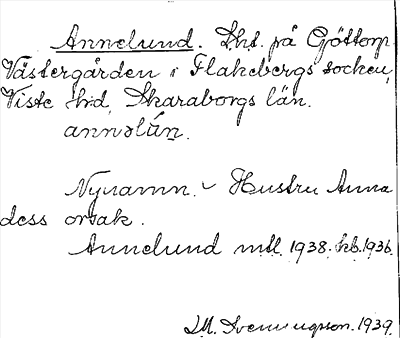 Annelund. Lht. på Göttorp
Västergården i Flakebergs socken,
Viste hd, Skaraborgs län.
annəlún.
Nynamn. Hustru Anna
dess orsak.
Annelund mtl. 1938. kb. 1936.
1939.